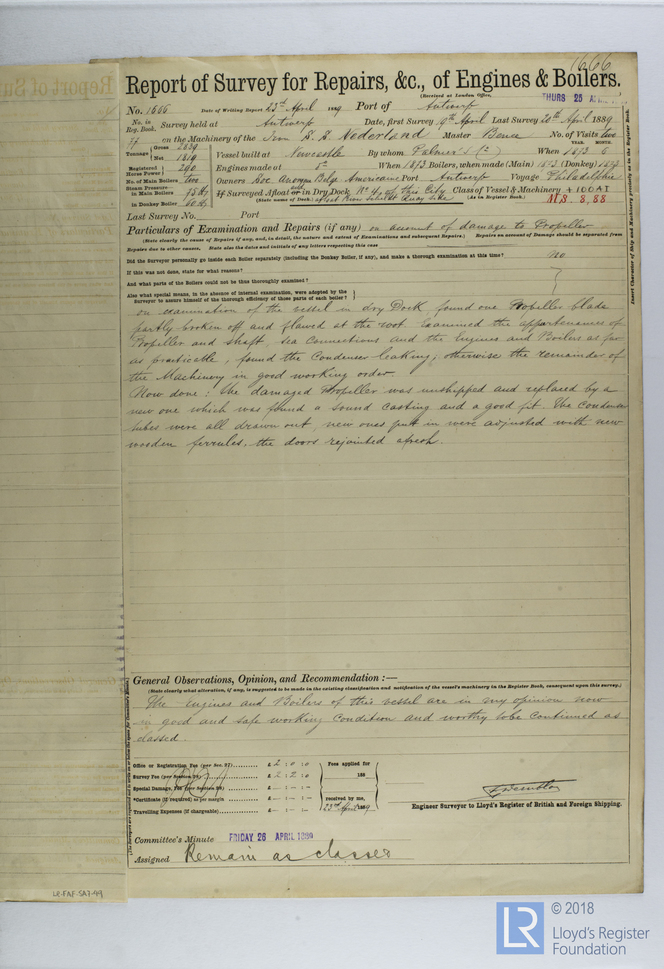 1666
Report of Survey for Repairs, &c., of Engines & Boilers.
(Received at London Office, THURS 25 A
No. 1666 Date of Writing Report 23rd April 1889 Port of Antwerp
No. in Reg. Book. Survey held at Antwerp Date, first Survey 9th April Last Survey 20th April 1889
77 on the Machinery of the S. S. Nederland Master Bence No. of Visits two
Tonnage Gross 2839 Net 1819 Vessel built at Newcastle By whom Palmer's When YEAR. 1873 MONTH. 6
Registered Horse Power 240 Engines made at When 1873 Boilers, when made (Main) 1873 (Donkey) 1873
No. of Main Boilers two Owners Soc Anonym Belge Americaine Port Antwerp Voyage Philadelphia
Steam Pressure in Main Boilers in Donkey Boiler 60 If Surveyed Afloat or in Dry Dock No 4, of This City Class of Vessel & Machinery + 100 A1
(State name of Dock.) Quay Side (As in Register Book.) M.S. 8,88
Last Survey No. Port
Particulars of Examination and Repairs (if any) on account of damage to Propeller
(State clearly the cause of Repairs if any, and, in detail, the nature and extent of Examinations and subsequent Repairs.) Repairs on account of Damage should be separated from
Repairs due to other causes. State also the dates and initials of any letters respecting this case
Did the Surveyor personally go inside each Boiler separately (including the Donkey Boiler, if any), and make a thorough examination at this time? No
If this was not done, state for what reasons?
And what parts of the Boilers could not be thus thoroughly examined?
Also what special means, in the absence of internal examination, were adopted by the
Surveyor to assure himself of the thorough efficiency of those parts of each boiler?
on examination of the vessel in dry Dock found one Propeller blade
partly broken off and flawed at the root. Examined the appurtenances of
Propeller and shaft, sea connections and the Engines and Boilers as far
as practicable, found the Condenser leaking; otherwise the remainder of
the Machinery in good working order.
Now done: The damaged Propeller was unshipped and replaced by a
new one which was found a sound casting and a good fit. The condenser
tubes were all drawn out, new ones put in were adjusted with new
wooden ferrules, the doors rejointed afresh.
General Observations, Opinion, and Recommendation :—
(State clearly what alteration, if any, is suggested to be made in the existing classification and notification of the vessel's machinery in the Register Book, consequent upon this survey.)
The engines and Boilers of this vessel are in my opinion now
in good and safe working condition and worthy to be continued as
classed.
Office or Registration Fee (per Sec. 27) £ 2 . 0 . 0 Fees applied for
Survey Fee (per Section 28) £ 2 . 2 . 0 188
Special Damage, Fee (per Section 28) £ - . - . -
*Certificate (if required) as per margin £ - . - . - received by me,
Travelling Expenses (if chargeable) £ - . - . - 23rd April 1889
Engineer Surveyor to Lloyd's Register of British and Foreign Shipping.
Committee's Minute FRIDAY 26 APRIL 1889
Assigned Remain as classed
LR-FAF-SA7-49
LR © 2018
Lloyd's Register
Foundation